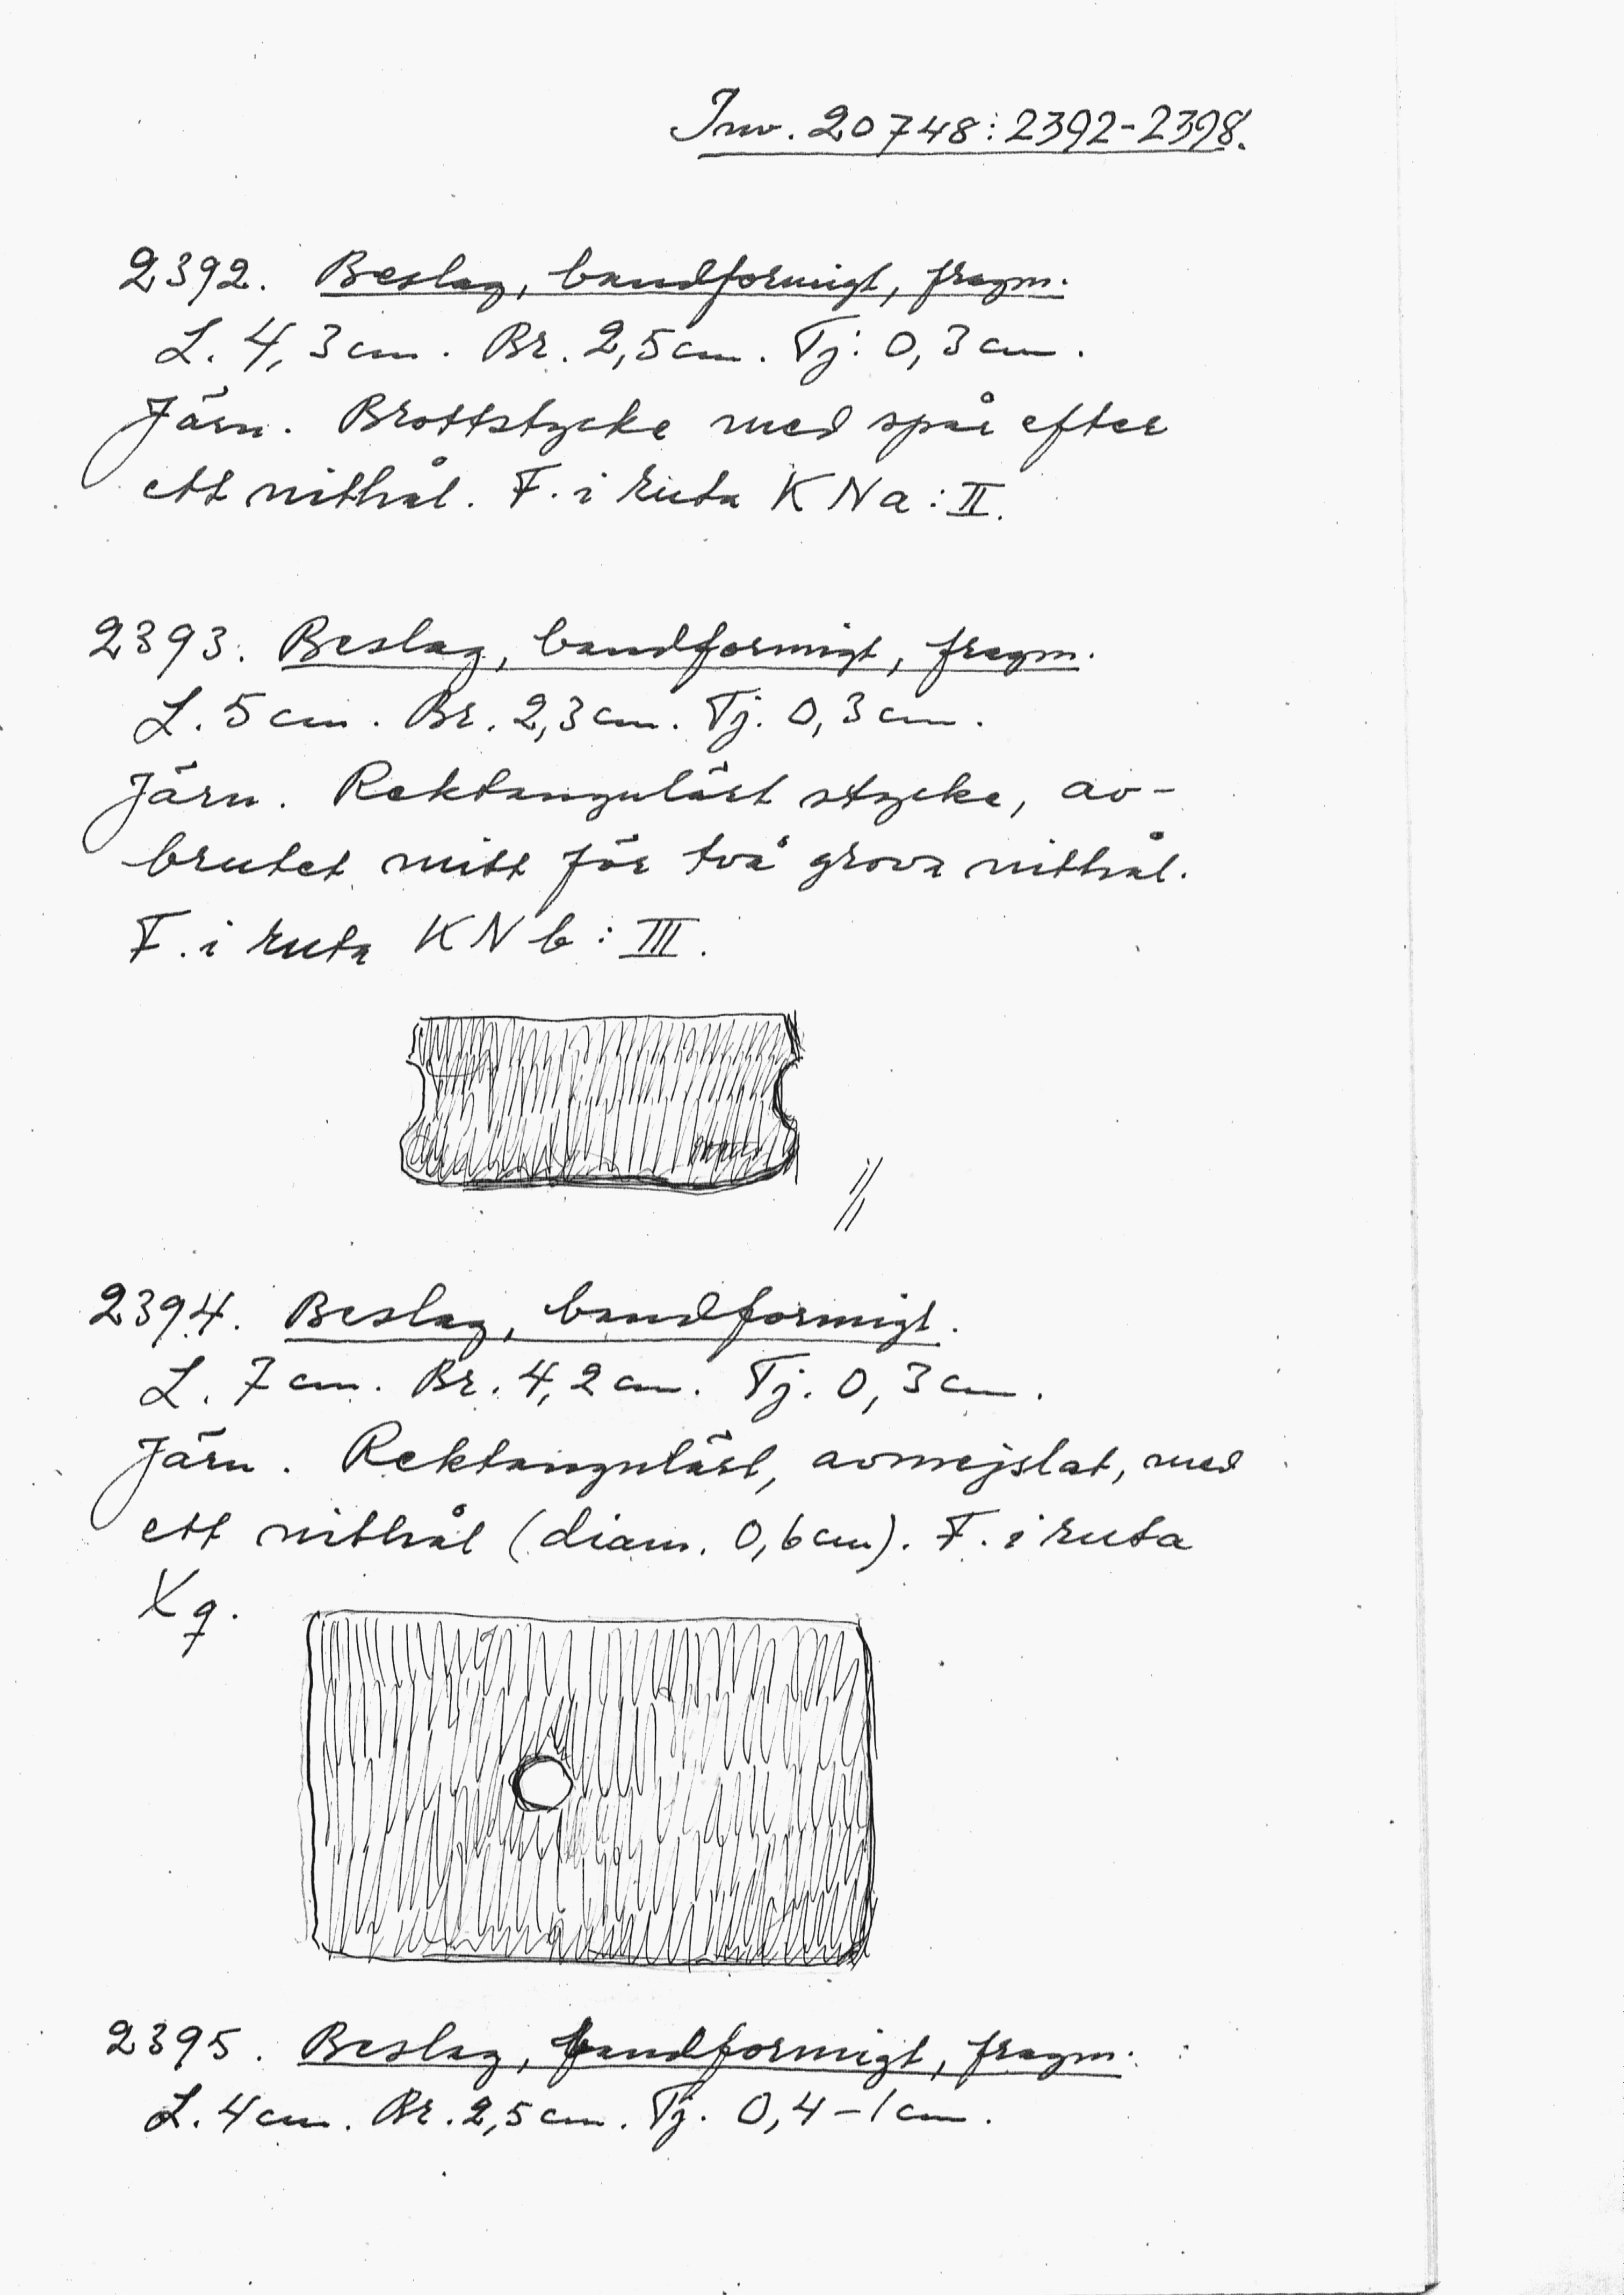 Inv. 20748:2392-2398.
2392. Beslag, bandformigt, fragm.
L. 4,3 cm. Br. 2,5 cm. Tj. 0,3 cm.
Järn. Brottstycke med spår efter
ett nithål. F. i ruta KNa:II.
2393. Beslag, bandformigt, fragm.
L. 5 cm. Br. 2,3 cm. Tj. 0,3 cm.
Järn. Rektangulärt stycke, av-
brutet mitt för två grova nithål.
F. i ruta KNb:III.
1/1
2394. Beslag, bandformigt.
L. 7 cm. Br. 4,2 cm. Tj. 0,3 cm.
Järn. Rektangulärt, avmejslat, med
ett nithål (diam. 0,6 cm). F. i ruta
Xq.
2395. Beslag, bandformigt, fragm.
L. 4 cm. Br. 2,5 cm. Tj. 0,4-1 cm.